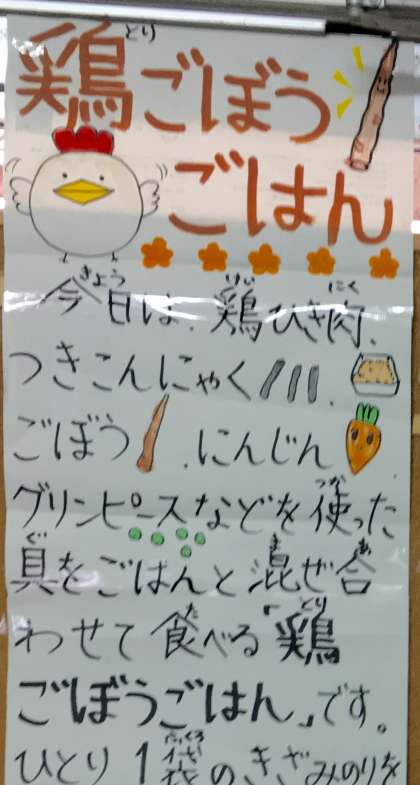 鶏ごぼう
ごはん
今日は、鶏ひき肉、
つきこんにゃく、
ごぼう、にんじん
グリンピースなどを使った
具をごはんと混ぜ合
わせて食べる「鶏
ごぼうごはん」です。
ひとり1袋のきざみのりを